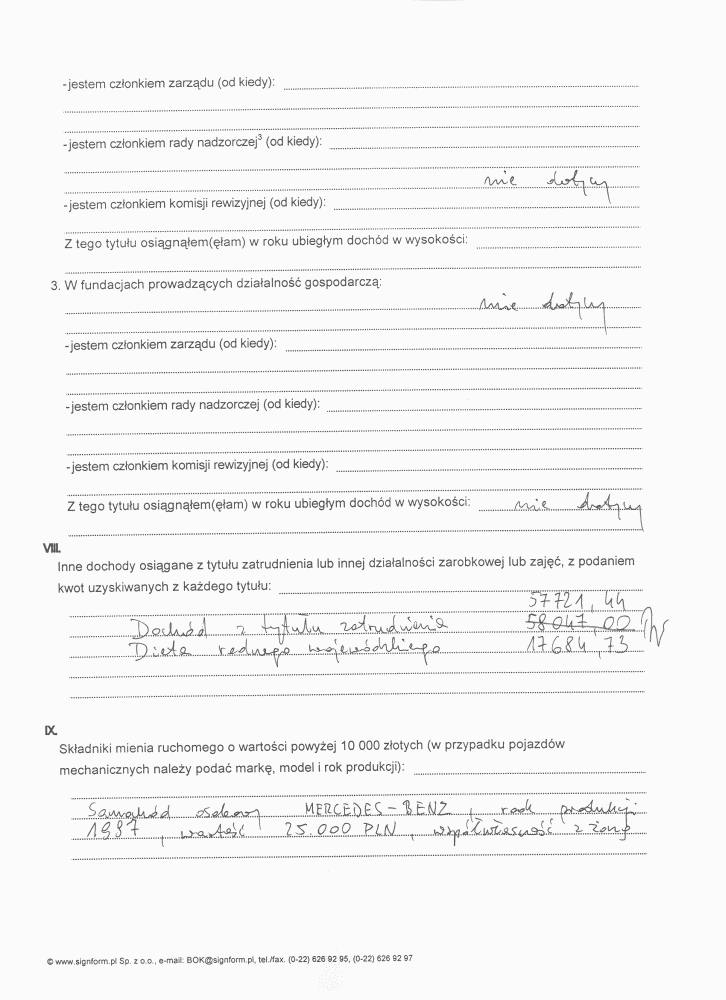 - jestem członkiem zarządu (od kiedy):
- jestem członkiem rady nadzorczej³ (od kiedy):
nie dotyczy
- jestem członkiem komisji rewizyjnej (od kiedy):
Z tego tytułu osiągnąłem(ęłam) w roku ubiegłym dochód w wysokości:
3. W fundacjach prowadzących działalność gospodarczą:
nie dotyczy
- jestem członkiem zarządu (od kiedy):
- jestem członkiem rady nadzorczej (od kiedy):
- jestem członkiem komisji rewizyjnej (od kiedy):
Z tego tytułu osiągnąłem(ęłam) w roku ubiegłym dochód w wysokości: nie dotyczy
VIII.
Inne dochody osiągane z tytułu zatrudnienia lub innej działalności zarobkowej lub zajęć, z podaniem
kwot uzyskiwanych z każdego tytułu:
57721,44
Dochód z tytułu zatrudnienia 58047,00
Dieta radnego wojewódzkiego 17684,73
IX.
Składniki mienia ruchomego o wartości powyżej 10 000 złotych (w przypadku pojazdów
mechanicznych należy podać markę, model i rok produkcji):
Samochód osobowy MERCEDES-BENZ, rok produkcji
1997, wartość 25.000 PLN, współwłasność z żoną
© www.signform.pl Sp. z o.o., e-mail: BOK@signform.pl, tel./fax. (0-22) 626 92 95, (0-22) 626 92 97